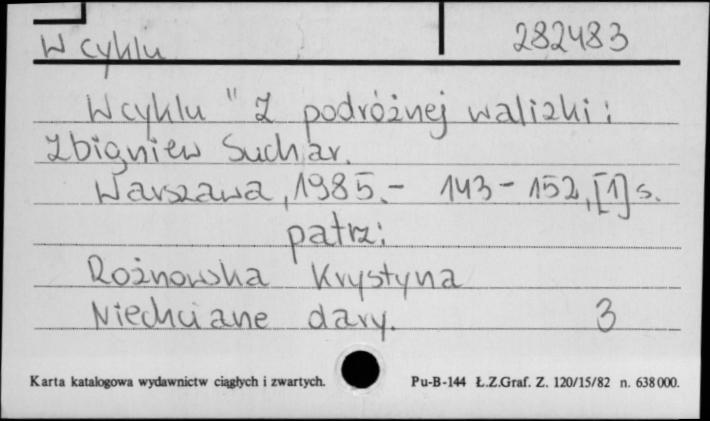 W cyklu 282483
W cyklu " Z podróżnej walizki:
Zbigniew Suchar.
Warszawa, 1985.- 143-152, [1] s.
patrz:
Rożnowska Krystyna
Niechciane dary. 3
Karta katalogowa wydawnictw ciągłych i zwartych. Pu-B-144 Ł.Z.Graf. Z. 120/15/82 n. 638000.